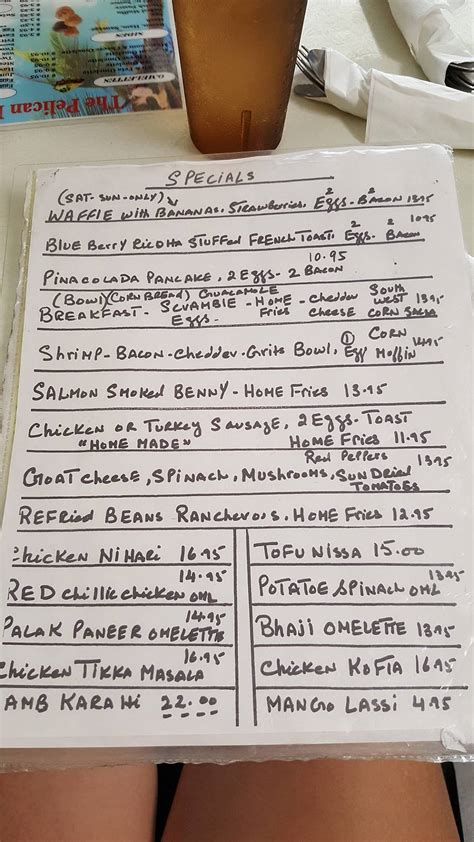 The Pelican
OMELETTES
SIDES
SPECIALS
(SAT-SUN-ONLY)
WAFFLE with BANANAS, STRAWBERRIES, 2 Eggs - 2 BACON 13.95
BLUE BERRY RICOTTA STUFFED FRENCH TOAST, 2 Eggs - 2 Bacon 10.95
PINACOLADA PANCAKE, 2 Eggs - 2 BACON 10.95
(Bowl) (CORN BREAD) GUACAMOLE South
BREAKFAST - SCRAMBLE - HOME - Cheddar WEST 13.95
Eggs. Fries CHEESE CORN SALSA
Shrimp - BACON - Cheddar - Grits Bowl, ① Egg CORN Moffin 14.95
SALMON SMOKED BENNY - HOME Fries 13.95
Chicken OR TURKEY SAUSAGE, 2 Eggs - TOAST
"HOME MADE" HOME Fries 11.95
Red Peppers 13.95
GOAT Cheese, SPINACH, MUSHROOMS, SUN DRIED TOMATOES
REFRIED BEANS RANCHEROUS, HOME Fries 12.95
Chicken NIHARI 16.95
RED chillie chicken OML 14.95
PALAK PANEER OMELETTE 14.95
Chicken TIKKA MASALA 16.95
AMB KARAHI 22.00
TOFU NISSA 15.00
POTATOE SPINACH OML 13.95
BHAJI OMELETTE 13.95
Chicken KOFTA 16.95
MANGO LASSI 4.95